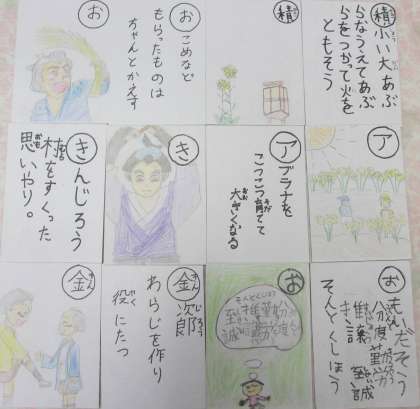 積小い大 あぶ
らなうえてあぶ
らをつかって火を
ともそう
積
おこめなど
もらったものは
ちゃんとかえす
お
ア
アブラナを
こつこつ育てて
大きくなる
き
きんじろう
村をすくった
思いやり。
おもいだそう
分度 勤労
推譲 至誠
そんとくしほう
お
金次郎
わらじを作り
役にたつ
金